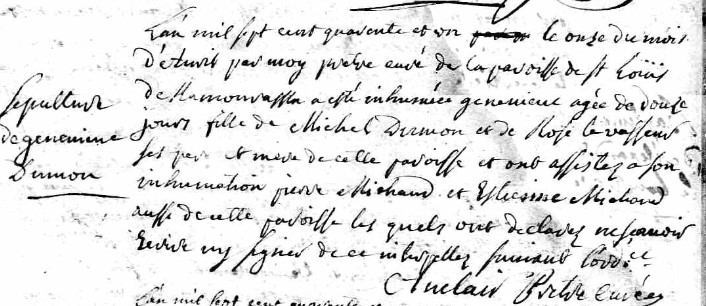 L'an mil sept cent quarente et un le onze du mois
d'avris par moy prêtre curé de la paroisse de St Loüis
de Kamouraska a esté inhumée genevieve agée de douze
jours fille de Michel Dumon et de Rose le vasseur
ses per et mere de cette paroisse et ont assistez a son
inhumation pierre Michaud et Estienne Michaud
aussi de cette paroisse les quels ont declarez ne scavoir
Ecrire ny signer de ce interpellez suivant l'ord.ce
Auclair Prêtre curé
Sepulture
de genevieve
Dumon
L'an mil sept cent quarante